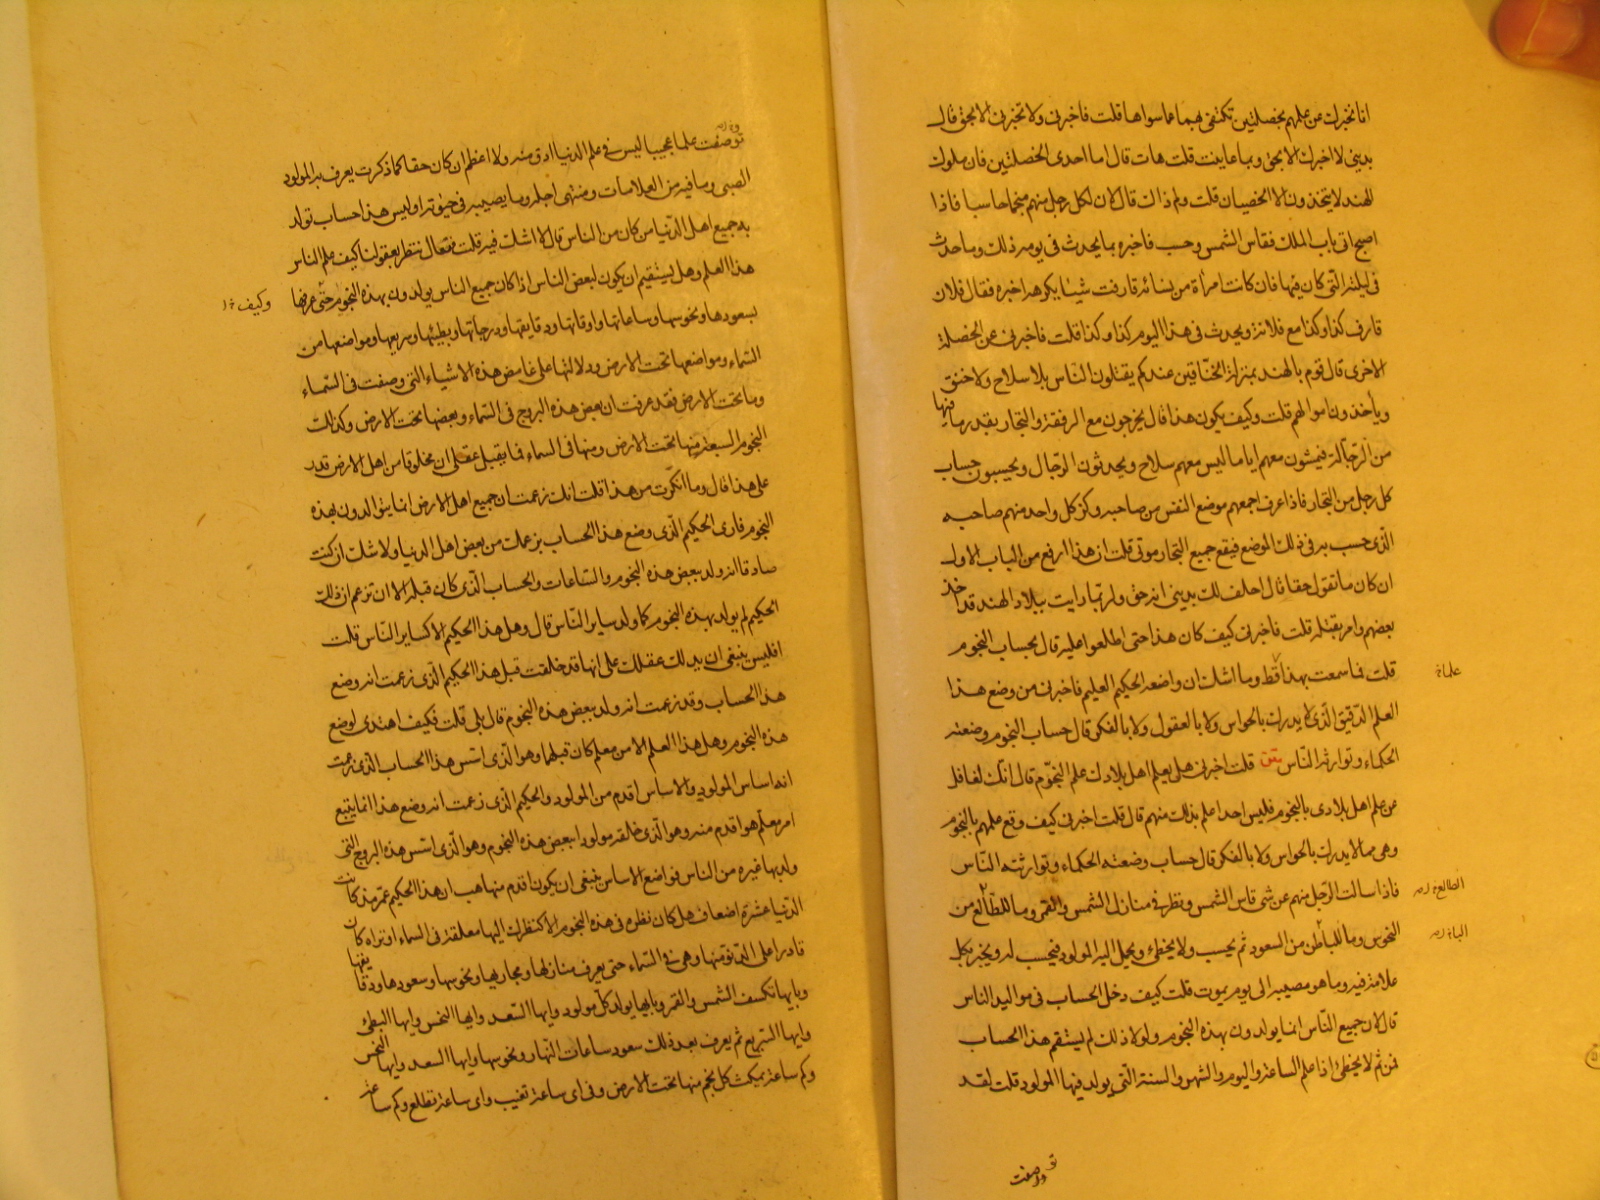 انا نخبرك عن علمهم بخصلتين تكتفى بهما عما سواها قلت فاخبرنى ولا تخبرنى الا بحق قال
بدينى لا اخبرك الا بحق وبما عاينت قلت هات قال اما احدى الخصلتين فان ملوك
الهند لا يتخذون الا الخصيان قلت ولم ذاك قال لان لكل رجل منهم منجما حاسبا فاذا
اصبح اتى باب الملك فقاس الشمس وحسب فاخبره بما يحدث فى يومه ذلك وما حدث
فى ليلته التى كان فيها فان كانت امرأة من نسائه قارفت شيئا يكرهه اخبره فقال فلان
قارف كذا وكذا مع فلانة ويحدث فى هذا اليوم كذا وكذا قلت فاخبرنى عن الخصلة
الاخرى قال قوم بالهند بمنزلة الخناقين عندكم يقتلون الناس بلا سلاح ولا خنق
وياخذون اموالهم قلت وكيف يكون هذا قال يخرجون مع الرفقة والتجار بقدر ما فيها
من الرجالة فيمشون معهم اياما ليس معهم سلاح ويحدثون الرجال ويحسبون حساب
كل رجل من التجار فاذا عرف اجمعهم موضع النفس من صاحبه وكز كل واحد منهم صاحبه
الذى حسب به فى ذلك الموضع فيقع جميع التجار موتى قلت ان هذا ارفع من الباب الاول
ان كان ما تقول حقا قال احلف لك بدينى انه حق ولربما رايت ببلاد الهند قد اخذ
بعضهم وامر بقتله قلت فاخبرنى كيف كان هذا حتى اطلعوا عليه قال بحساب النجوم
قلت فما سمعت بهذا قط وما اشك ان واضعه الحكيم العليم فاخبرنى من وضع هذا
علما
العلم الدقيق الذى لا يدرك بالحواس ولا بالعقول ولا بالفكر قال حساب النجوم وضعته
الحكماء وتوارثه الناس متن قلت اخبرنى هل يعلم اهل بلادك علم النجوم قال انك لغافل
عن علم اهل بلادى بالنجوم فليس احد اعلم بذلك منهم قال قلت اخبرنى كيف وقع علمهم بالنجوم
وهى مما لا يدرك بالحواس ولا بالفكر قال حساب وضعته الحكماء وتوارثته الناس
فاذا سالت الرجل منهم عن شى قاس الشمس ونظر فى منازل الشمس والقمر وما للطالع من
الطالعة
النحوس وما للباطن من السعود ثم يحسب ولا يخطئ ويحمل اليه المولود فيحسب له ويخبر بكل
علامة فيه وما هو مصيبه الى يوم يموت قلت كيف دخل الحساب فى مواليد الناس
قال لان جميع الناس انما يولدون بهذه النجوم ولولا ذلك لم يستقم هذا الحساب
فمن ثم لا يخطئ اذا علم الساعة واليوم والشهر والسنة التى يولد فيها المولود قلت لقد
توصفت
توصفت علما عجيبا ليس فى علم الدنيا ادق منه ولا اعظم ان كان حقا كما ذكرت يعرف به المولود
الصبى وما فيه من العلامات ومنتهى اجله وما يصيبه فى حيوته اوليس هذا حساب تولد
به جميع اهل الدنيا من كان من الناس قال لا اشك فيه قلت فتعال ننظر بعقولنا كيف علم الناس
هذا العلم وهل يستقيم ان يكون لبعض الناس اذا كان جميع الناس يولدون بهذه النجوم حتى عرفها
وكيف
بسعودها ونحوسها وساعاتها واوقاتها ودقايقها ودرجاتها وبطيئها وسريعها ومواضعها من
السماء ومواضعها تحت الارض ودلالتها على غامض هذه الاشياء التى وصفت فى السماء
وما تحت الارض فقد عرفت ان بعض هذه البروج فى السماء وبعضها تحت الارض وكذلك
النجوم السبعة منها تحت الارض ومنها فى السماء فما يقبل عقلى ان مخلوقا من اهل الارض قدر
على هذا قال وما انكرت من هذا قلت انك زعمت ان جميع اهل الارض انما يتوالدون بهذه
النجوم فارى الحكيم الذى وضع هذا الحساب بزعمك من بعض اهل الدنيا ولا شك ان كنت
صادقا انه ولد ببعض هذه النجوم والساعات والحساب الذى كان قبله الا ان تزعم ان ذلك
الحكيم لم يولد بهذه النجوم كما ولد ساير الناس قال وهل هذا الحكيم الا كساير الناس قلت
افليس ينبغى ان يدلك عقلك على انها قد خلقت قبل هذا الحكيم الذى زعمت انه وضع
هذا الحساب وقد زعمت انه ولد ببعض هذه النجوم قال بلى قلت فكيف اهتدى لوضع
هذه النجوم وهل هذا العلم الا من معلم كان قبلهما وهو الذى اسس هذا الحساب الذى زعمت
انه اساس المولود والاساس اقدم من المولود والحكيم الذى زعمت انه وضع هذا انما يتبع
امر معلم هو اقدم منه وهو الذى خلقه مولودا ببعض هذه النجوم وهو الذى اسس هذه البروج التى
ولد بها غيره من الناس فواضع الاساس ينبغى ان يكون اقدم منها هب ان هذا الحكيم عمر مذ كانت
الدنيا عشرة اضعاف هل كان نظره فى هذه النجوم الا كنظرك اليها معلقة فى السماء او تراه كان
قادرا على الدنو منها وهى فى السماء حتى يعرف منازلها ومجاريها ونحوسها وسعودها ودقايقها
وبايها تكسف الشمس والقمر وبايها يولد كل مولود وايها السعد وايها النحس وايها البطئ
وايها السريع ثم يعرف بعد ذلك سعود ساعات النهار ونحوسها وايها السعد وايها النحس
وكم ساعة يمكث كل نجم منها تحت الارض وفى اى ساعة تغيب واى ساعة تطلع وكم ساعة